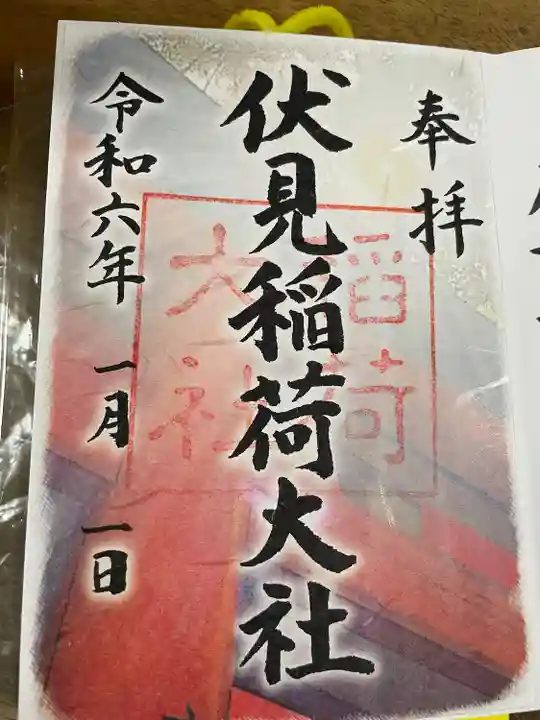 奉拝
伏見稲荷大社
稲荷
大社
令和六年 一月 一日